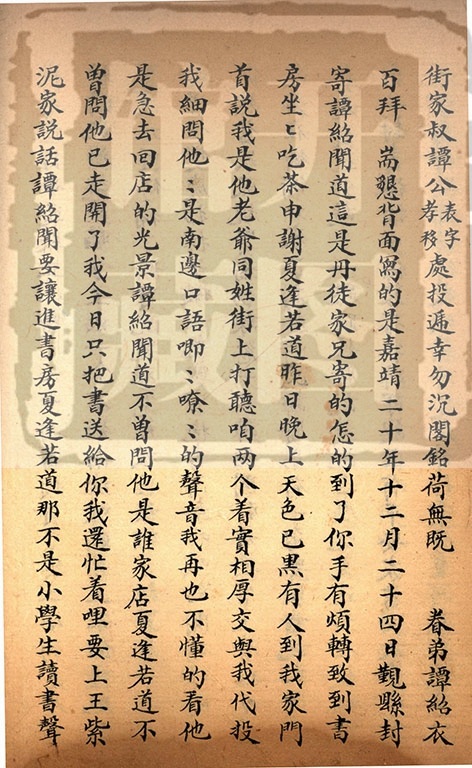 街家叔譚公表字孝移處投遞幸勿沉閣銘荷無既　眷弟譚紹衣
百拜　耑懇背面寫的是嘉靖二十年十二月二十四日覲縣封
寄譚紹聞道這是丹徒家兄寄的怎的到了你手有煩轉致到書
房坐〻吃茶申謝夏逢若道昨日晚上天色已黑有人到我家門
首說我是他老爺同姓街上打聽咱兩个着實相厚交與我代投
我細問他〻是南邊口語唧〻嘹〻的聲音我再也不懂的看他
是急去回店的光景譚紹聞道不曾問他是誰家店夏逢若道不
曾問他已走開了我今日只把書送給你我還忙着哩要上王紫
泥家説話譚紹聞要讓進書房夏逢若道那不是小學生讀書聲